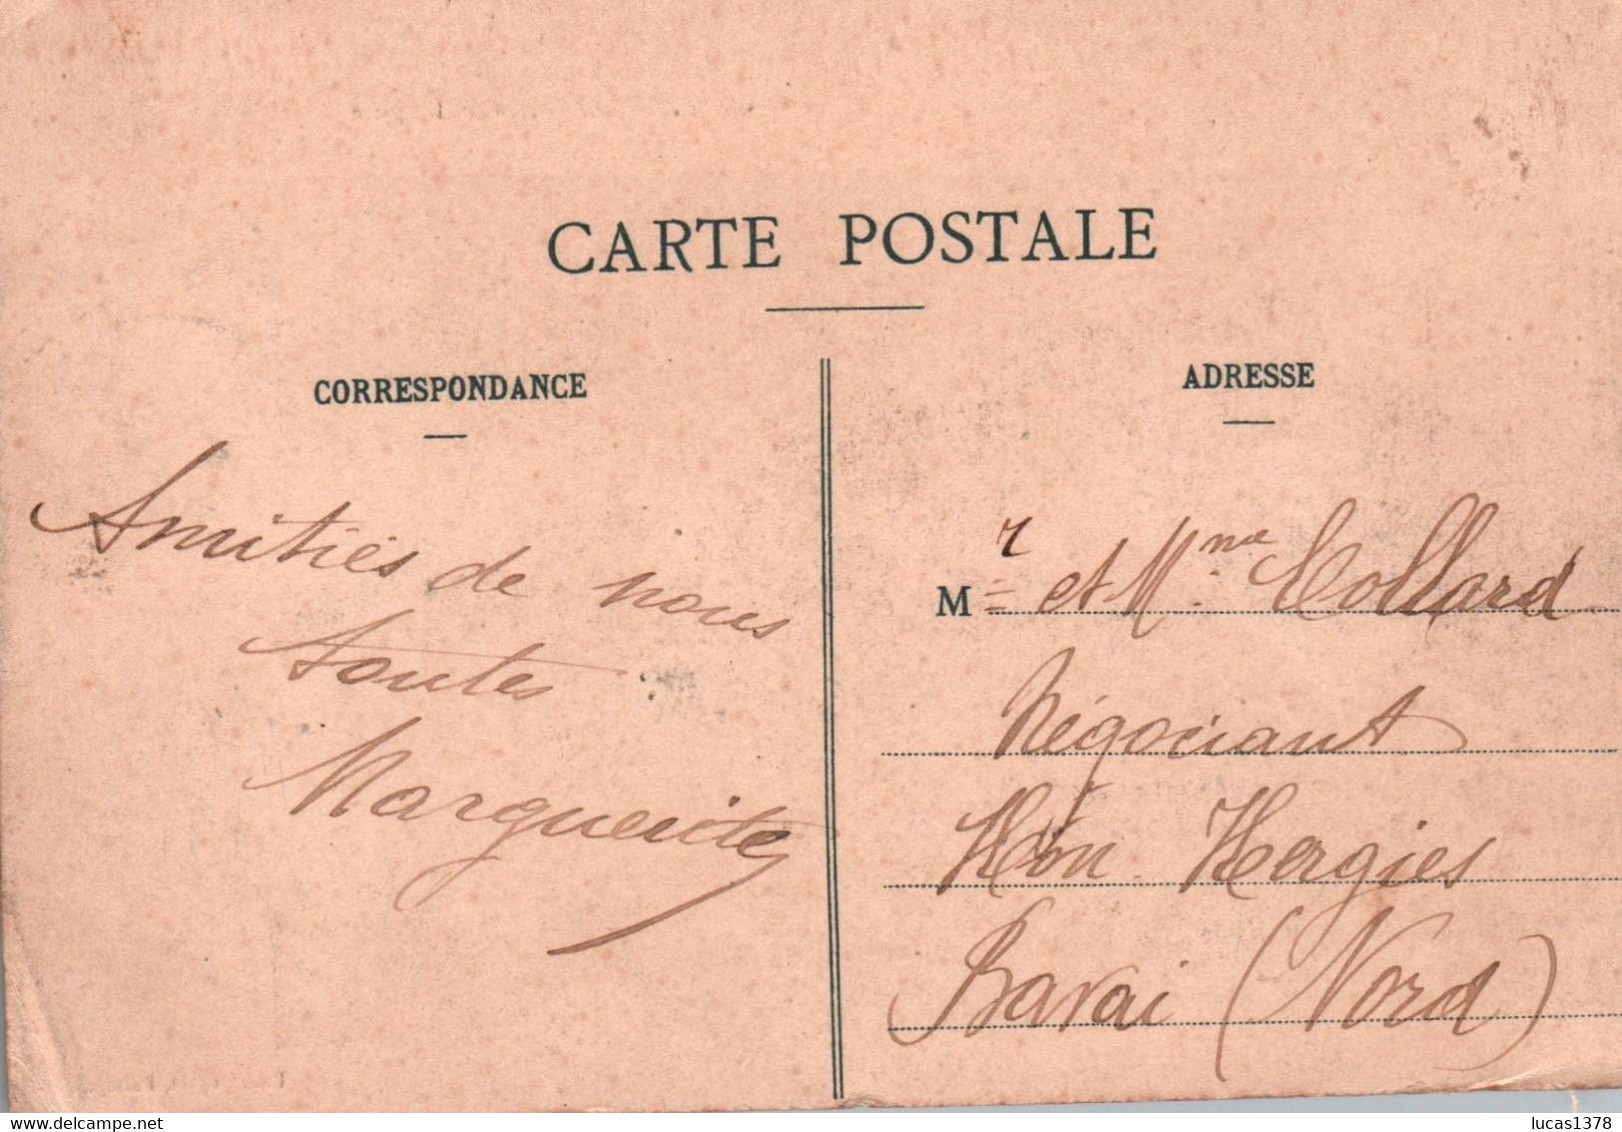 CARTE POSTALE
CORRESPONDANCE
Amitiés de nous
toutes
Marguerite
ADRESSE
Mr et Mme Collard
Négociant
Hon Hergies
Bavai (Nord)
www.delcampe.net
lucas1378